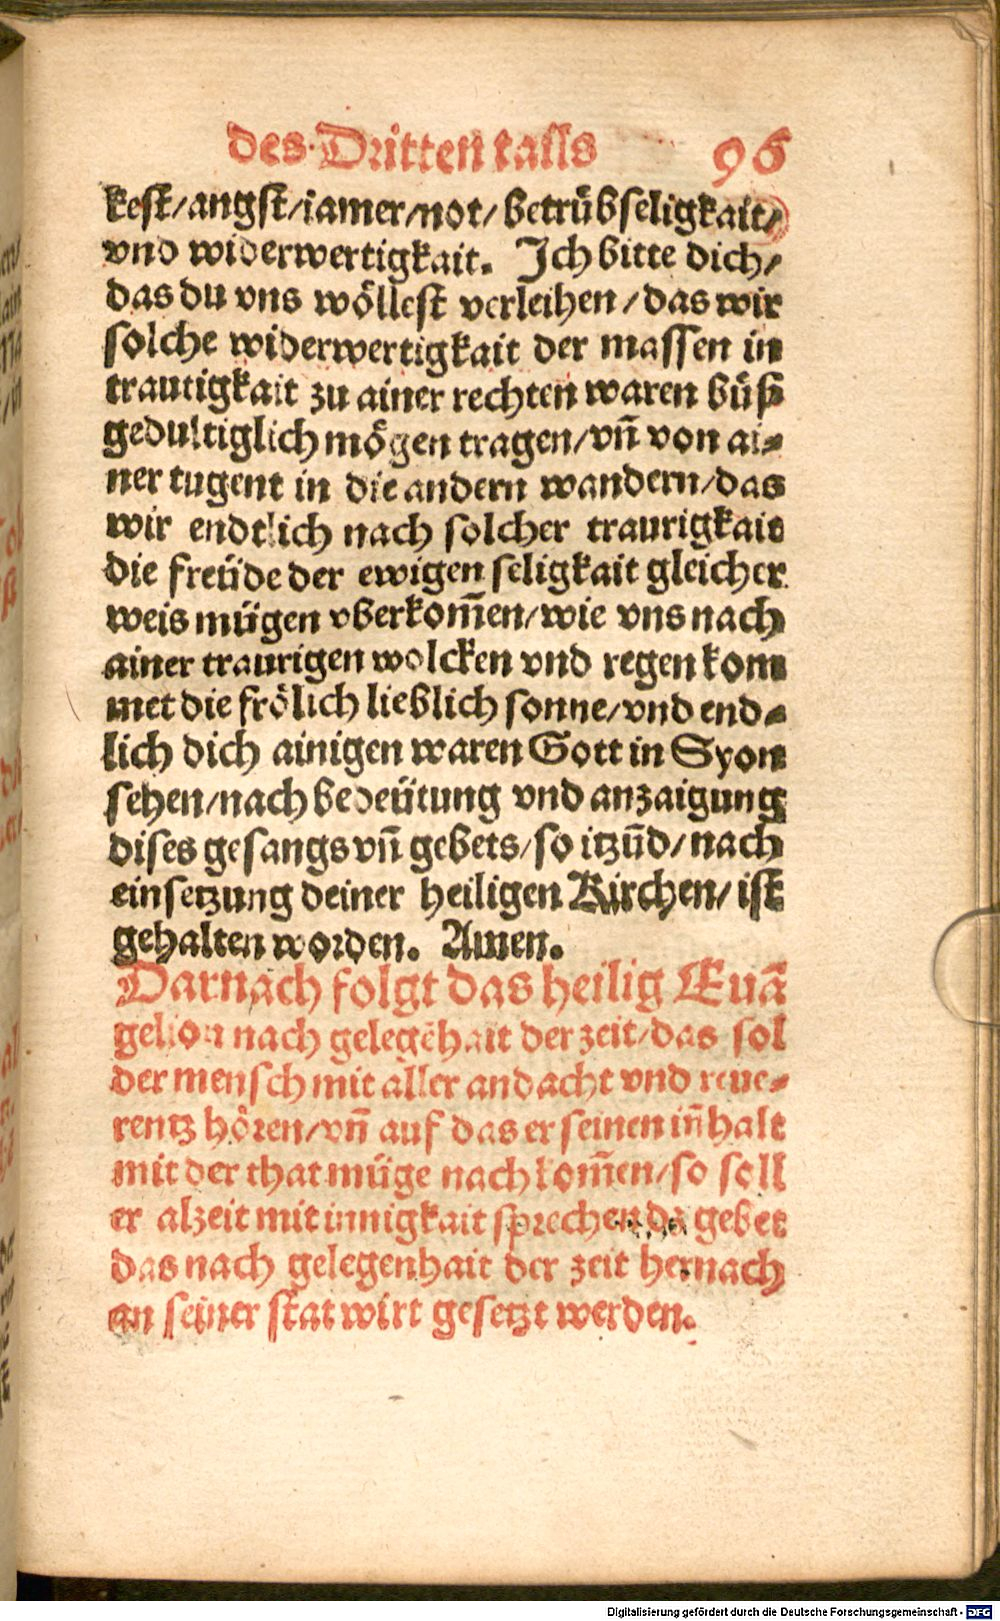 des Dritten tails 96
kest/angst/iamer/not/betrübseligkait/
vnd widerwertigkait. Ich bitte dich/
das du vns wöllest verleihen/das wir
solche widerwertigkait der massen in
trautigkait zu ainer rechten waren büß
gedultiglich mögen tragen/vn̄ von ai⸗
ner tugent in die andern wandern/das
wir endtlich nach solcher traurigkait
die freüde der ewigen seligkait gleicher
weis mügen vberkom̄en/wie vns nach
ainer traurigen wolcken vnd regen kom
met die frölich lieblich sonne/vnd end⸗
lich dich ainigen waren Gott in Syon
sehen/nach bedeütung vnd anzaigung
dises gesangs vn̄ gebets/so itzūd/nach
einsetzung deiner heiligen Kirchen/ist
gehalten worden. Amen.
Darnach folgt das heilig Euā
gelion nach gelegēhait der zeit/das sol
der mensch mit aller andacht vnd reue⸗
rentz hören/vn̄ auf das er seinen in̄halt
mit der that müge nach kom̄en/so soll
er alzeit mit innigkait sprechen gebet
das nach gelegenhait der zeit hernach
an seiner stat wirt gesetzt werden.
Digitalisierung gefördert durch die Deutsche Forschungsgemeinschaft - DFG